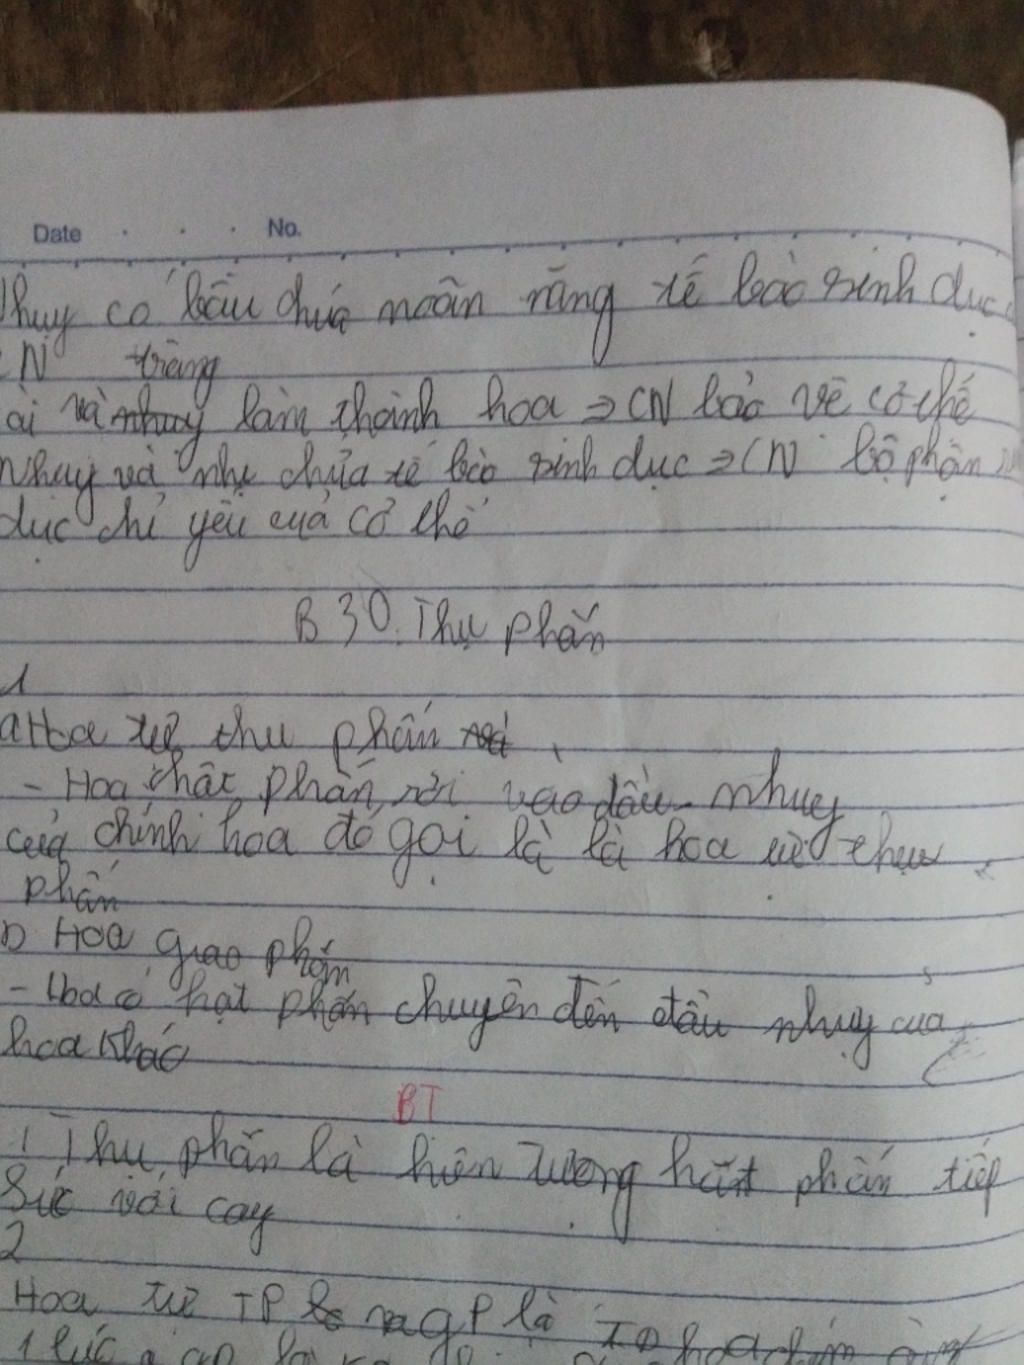 Date No.
Nhụy có bầu chứa noãn năng tế bào sinh dục
N tràng
ài và làm thành hoa => CN bảo vê cơ thế
Nhuy và nhị chứa tế bào sinh dục => CN bộ phận
dục chỉ yêu của cơ thể
B 30. Thụ phấn
1
a Hoa tự thu phấn
- Hoa phấn rơi vào đầu nhuy
của chính hoa đó gọi là là hoa tự thụ
phấn
b Hoa giao phấn
- Hoa có hạt phấn chuyên đến đầu nhụy của
hoa khác
BT
1 Thu phấn là hiên tượng hăt phấn tiếp
Súc với cay
2
Hoa tự TP GP là